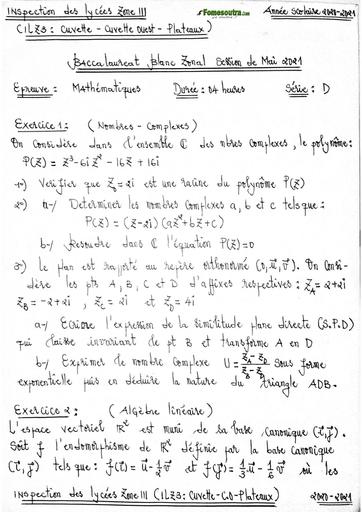 Inspection des lycées Zone III
Fomesoutra.com
Année Scolaire 2020-2021
(CILZ3 : Cuvette - Cuvette Ouest - Plateaux)
Baccalaureat Blanc Zonal Session de Mai 2021
Epreuve : Mathématiques Durée : 04 heures Série : D
Exercice 1 : (Nombres - Complexes)
On Considère dans l'ensemble ℂ des nbres complexes, le polynôme :
P(Z) = Z³ - 6i Z² - 16Z + 16i
1°) Verifier que Z₀ = 2i est une racine du polynôme P(Z)
2°) a-/ Determiner les nombres complexes a, b et c tels que :
P(Z) = (Z-2i) (aZ²+bZ+c)
b-/ Resoudre dans ℂ l'équation P(Z)=0
3°) Le plan est rapporté au repère orthonormé (o, u⃗, v⃗). On Consi-
dère les pts A, B, C et D d'affixes respectives : Z_A = 2+2i
Z_B = -2+2i, Z_C = 2i et Z_D = 4i
a-/ Ecrire l'expression de la Similitude plane directe (S.P.D)
qui laisse invariant le pt B et transforme A en D
b-/ Exprimer le nombre complexe U = (Z_A - Z_D)/(Z_B - Z_D) sous forme
exponentielle puis en déduire la nature du triangle ADB.
Exercice 2 : (Algèbre linéaire)
L'espace vectoriel ℝ² est muni de sa base canonique (i⃗, j⃗).
Soit f l'endomorphisme de ℝ² définie par la base canonique
(i⃗, j⃗) tels que : f(i⃗) = u⃗ - 1/2 v⃗ et f(j⃗) = 1/3 u⃗ - 1/6 v⃗ où les
Inspection des lycées Zone III (CILZ3 : Cuvette-C.O-Plateaux) 2020-2021